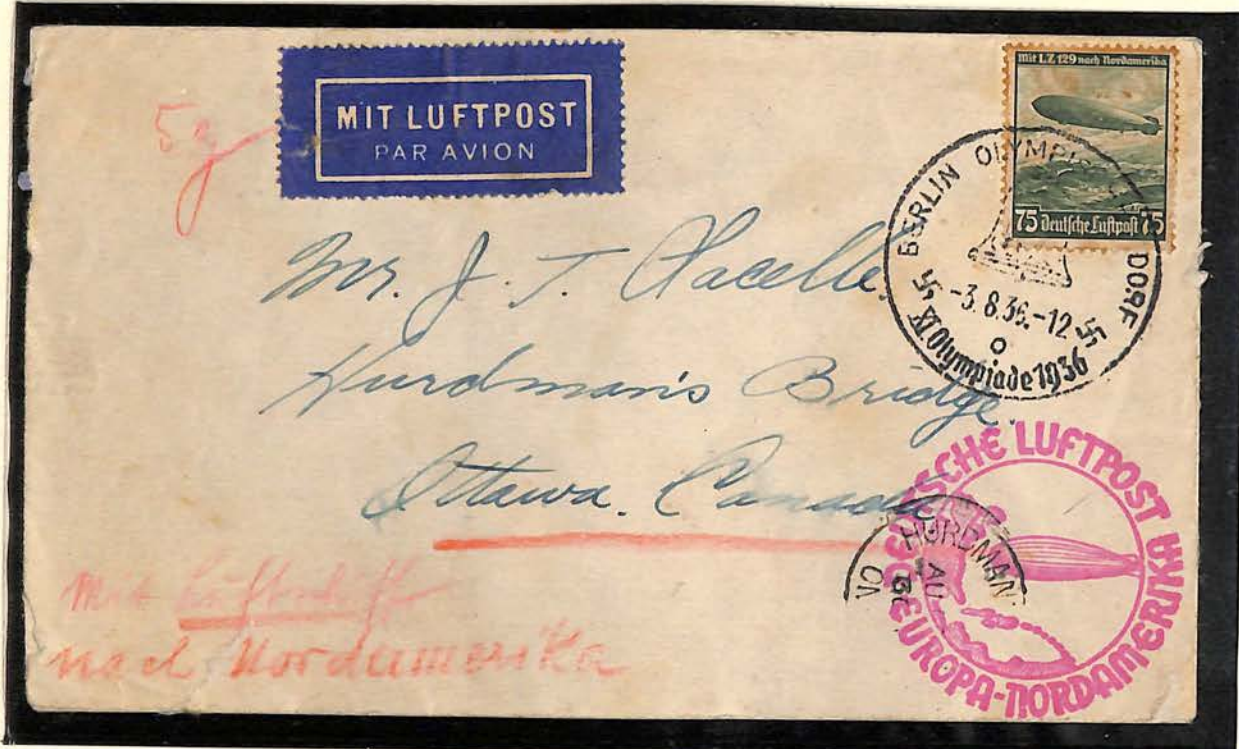 5g
MIT LUFTPOST
PAR AVION
Mit LZ 129 nach Nordamerika
75 Deutsche Luftpost 75
BERLIN OLYMPISCHES DORF
-3.8.36.-12
o
XI Olympiade 1936
Mr. J. T. Lacelle,
Hurdman's Bridge.
Ottawa. Canada
DEUTSCHE LUFTPOST
EUROPA-NORDAMERIKA
HURDMAN
AU
Mit Luftschiff
nach Nordamerika